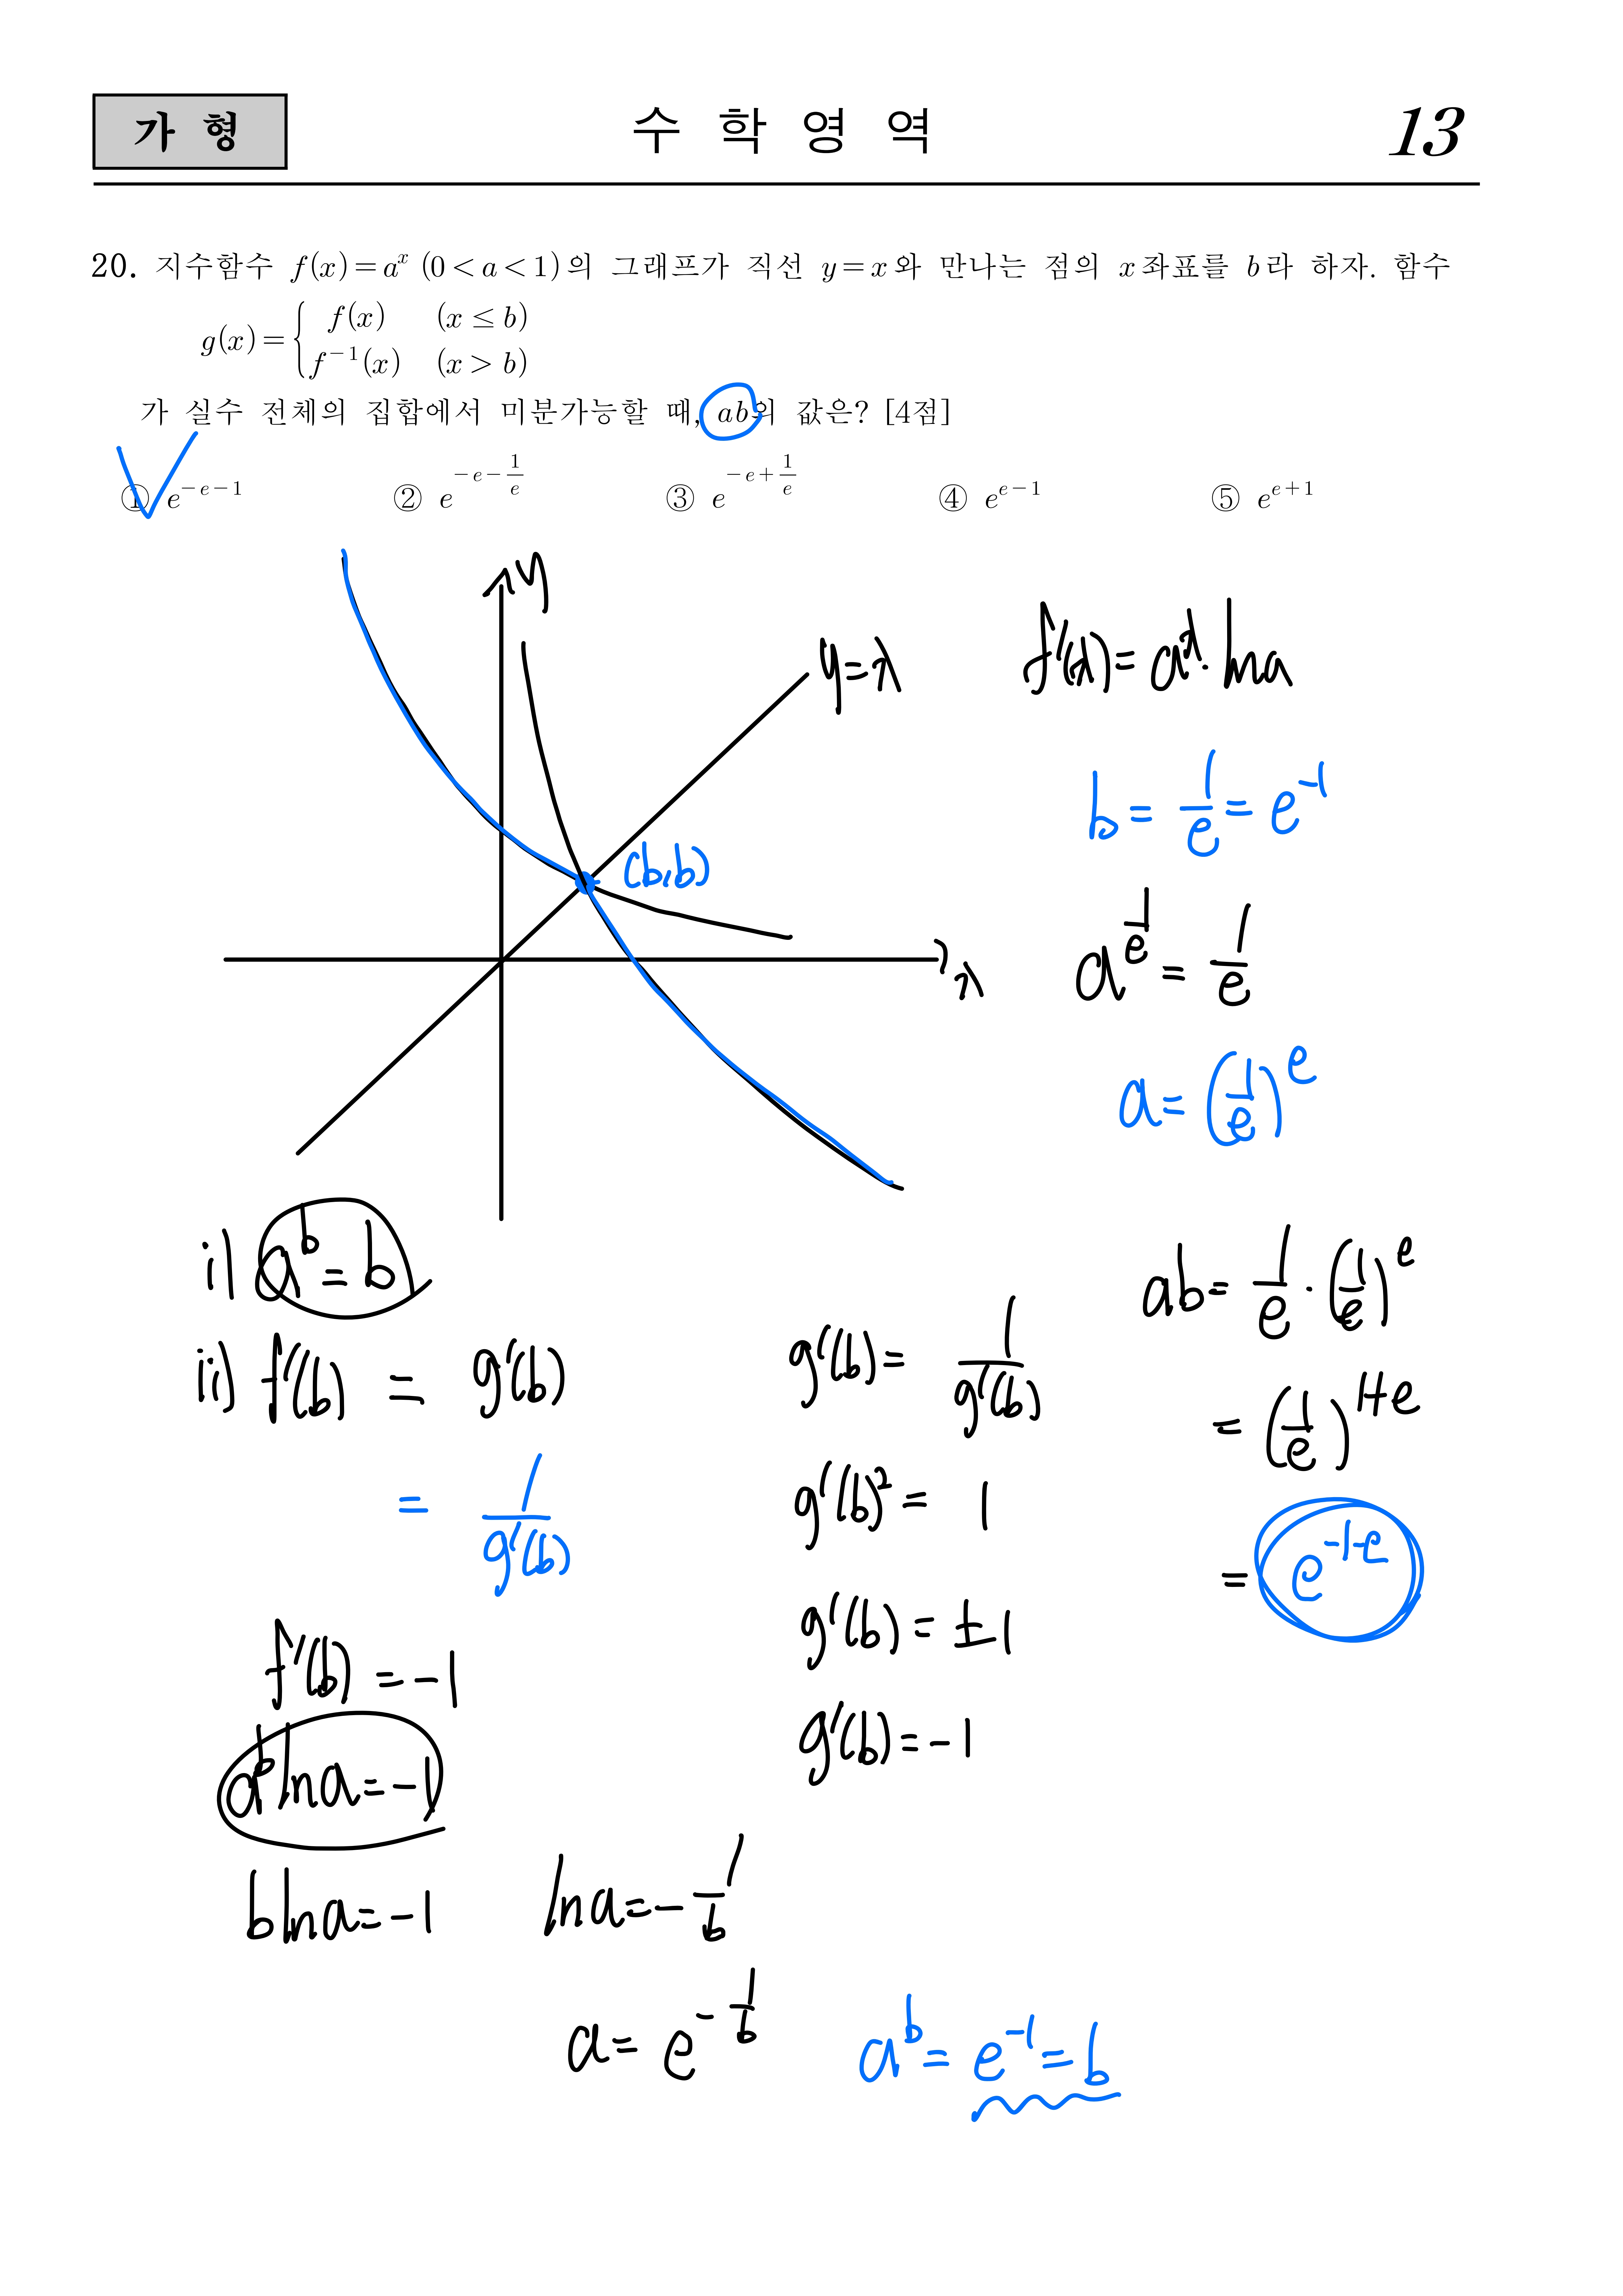 가 형
수 학 영 역
13
20. 지수함수 f(x)=a^x (0<a<1)의 그래프가 직선 y=x와 만나는 점의 x좌표를 b라 하자. 함수
g(x)={ f(x) (x≤b)
f^{-1}(x) (x>b)
가 실수 전체의 집합에서 미분가능할 때, ab의 값은? [4점]
① e^{-e-1} ② e^{-e-\frac{1}{e}} ③ e^{-e+\frac{1}{e}} ④ e^{e-1} ⑤ e^{e+1}
y
y=x
(b,b)
x
f'(x)=a^x·lna
b=\frac{1}{e}=e^{-1}
a^{\frac{1}{e}}=\frac{1}{e}
a=(\frac{1}{e})^e
i) a^b=b
ii) f'(b) = g'(b)
= \frac{1}{g'(b)}
f'(b)=-1
a^b lna=-1
b lna=-1
lna=-\frac{1}{b}
a=e^{-\frac{1}{b}}
a^b=e^{-1}=b
g'(b)=\frac{1}{g'(b)}
g'(b)^2=1
g'(b)=±1
g'(b)=-1
ab=\frac{1}{e}·(\frac{1}{e})^e
=(\frac{1}{e})^{1+e}
=e^{-1-e}